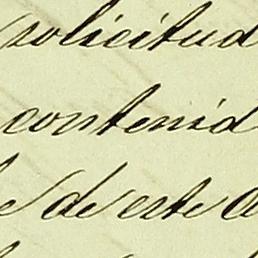 solicitud
contenid
de este